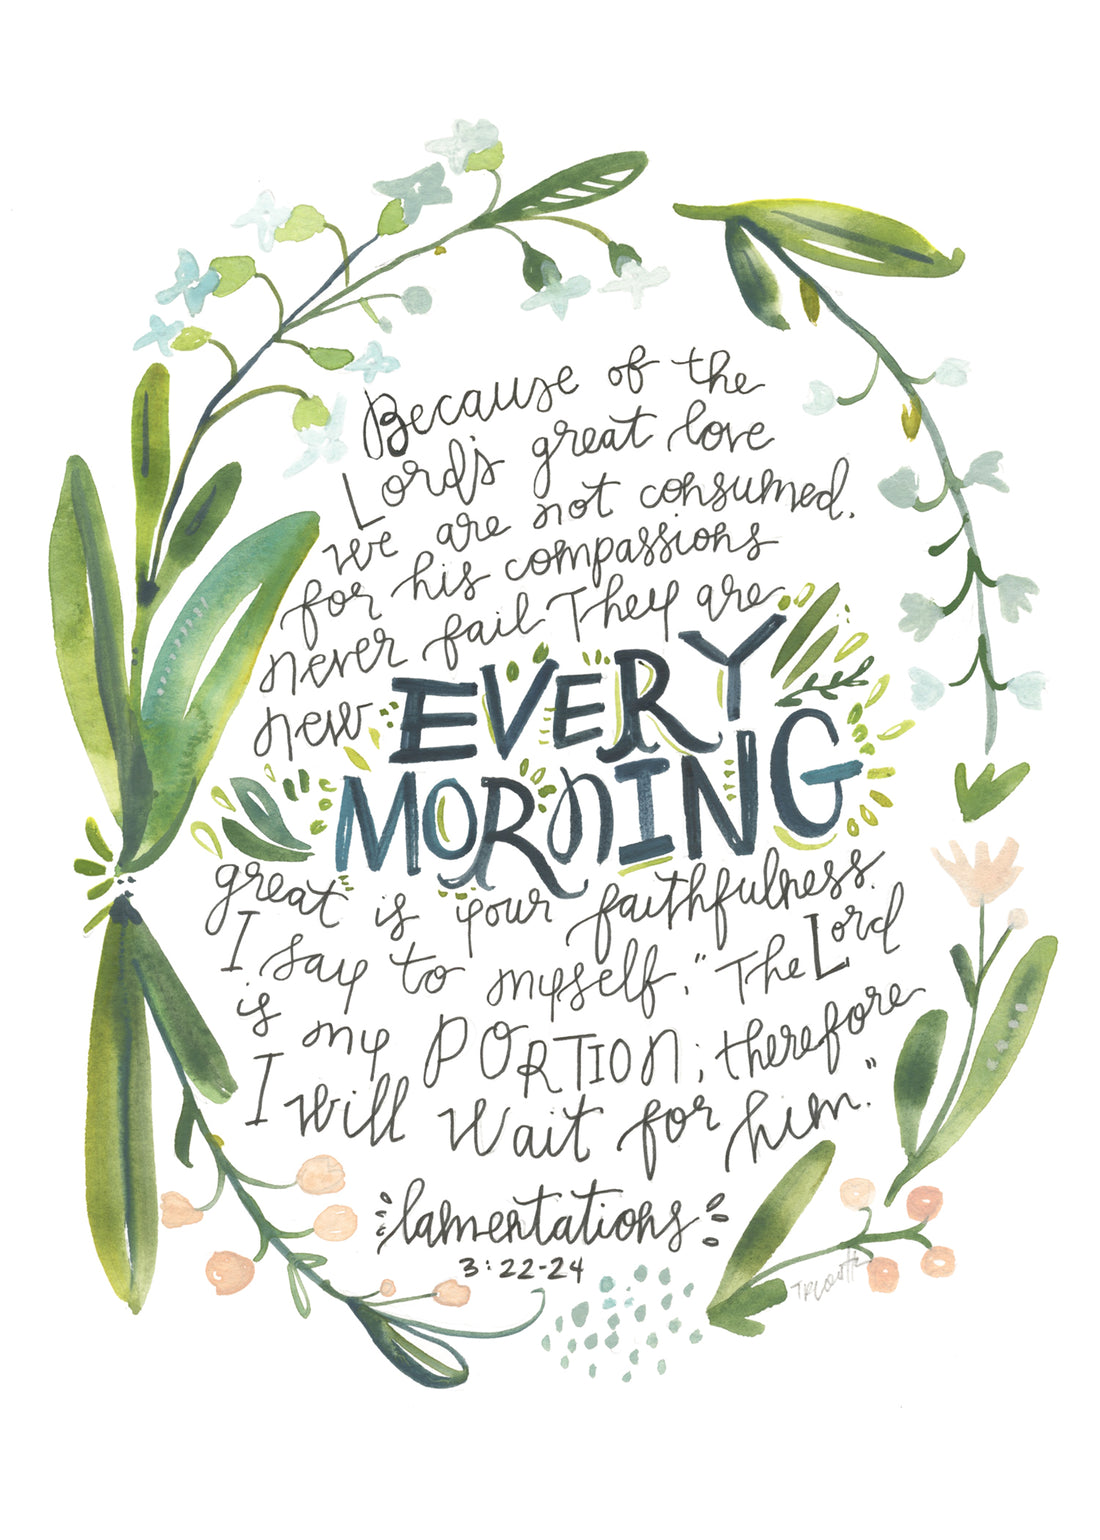 Because of the
Lord's great love
we are not consumed.
for his compassions
never fail They are
new EVERY
MORNING
great is your faithfulness.
I say to myself: "The Lord
is my PORTION; therefore
I will Wait for him."
lamentations
3:22-24